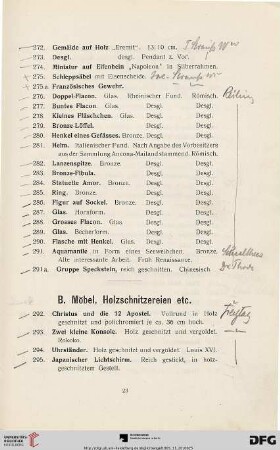 272. Gemälde auf Holz „Eremit“. 13:10 cm.
273. Desgl. desgl. Pendant z. Vor.
274. Miniatur auf Elfenbein „Napoleon“ in Silberrahmen.
275. Schleppsäbel mit Eisenscheide.
275a Französisches Gewehr.
276. Doppel-Flacon. Glas. Rheinischer Fund. Römisch.
277. Buntes Flacon. Glas. Desgl. Desgl.
278. Kleines Fläschchen. Glas. Desgl. Desgl.
279. Bronze-Löffel. Desgl. Desgl.
280. Henkel eines Gefässes. Bronze. Desgl. Desgl.
281. Helm. Italienischer Fund. Nach Angabe des Vorbesitzers
aus der Sammlung Ancona-Mailand stammend. Römisch.
282. Lanzenspitze. Bronze. Desgl. Desgl.
283. Bronze-Fibula. Desgl. Desgl.
284. Statuette Amor. Bronze. Desgl. Desgl.
285. Ring. Bronze. Desgl. Desgl.
286. Figur auf Sockel. Bronze. Desgl. Desgl.
287. Glas. Hornform. Desgl. Desgl.
288. Grosses Flacon. Glas. Desgl. Desgl.
289. Glas. Becherform. Desgl. Desgl.
290. Flasche mit Henkel. Glas. Desgl. Desgl.
291. Aquamanile in Form eines Seeweibchen. Bronze.
Alte interessante Arbeit. Früh Renaissance.
291a. Gruppe Speckstein, reich geschnitten. Chinesisch
B. Möbel, Holzschnitzereien etc.
292. Christus und die 12 Apostel. Vollrund in Holz
geschnitzt und polichromiert je ca. 36 cm hoch.
293. Zwei kleine Konsole. Holz geschnitzt und vergoldet.
Rokoko.
294. Uhrständer. Holz geschnitzt und vergoldet Louis XVI.
295. Japanischer Lichtschirm. Reich gestickt, in holz-
geschnitztem Gestell.
23
UNIVERSITÄTS-
BIBLIOTHEK
HEIDELBERG
DFG